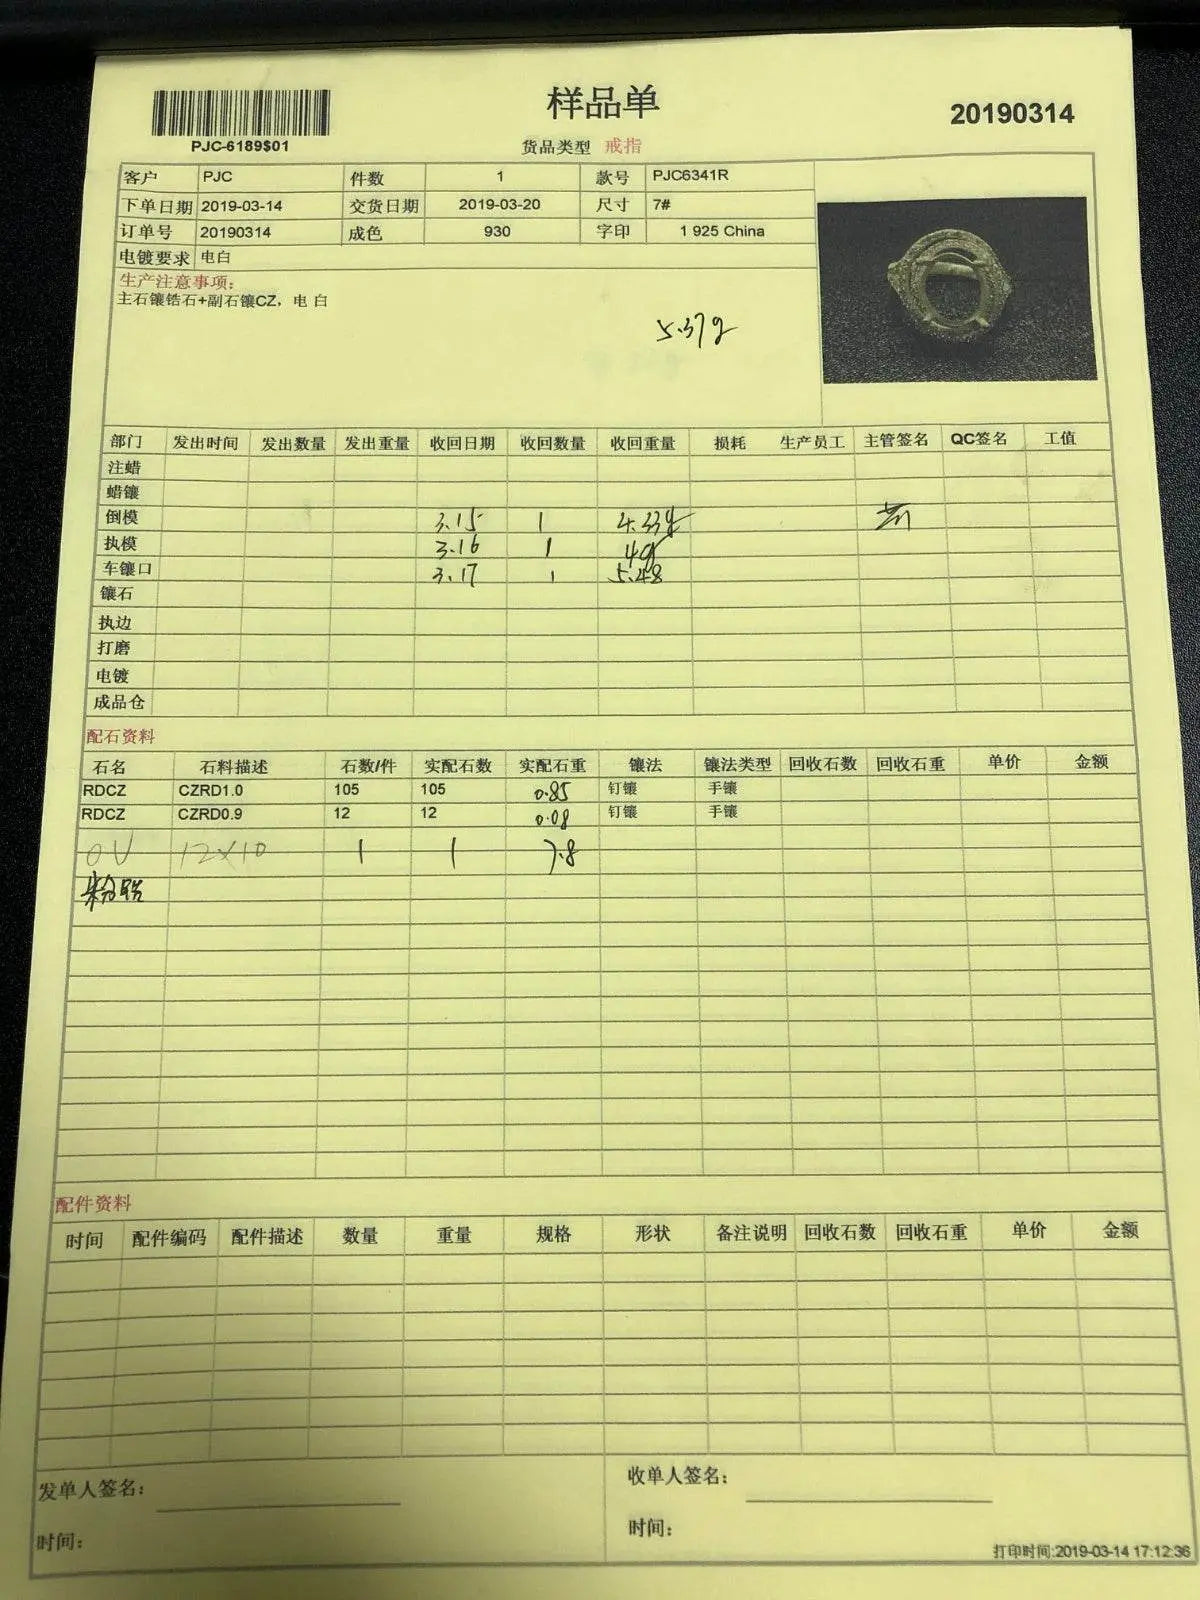 样品单
20190314
PJC-6189$01
货品类型 戒指
客户 PJC 件数 1 款号 PJC6341R
下单日期 2019-03-14 交货日期 2019-03-20 尺寸 7#
订单号 20190314 成色 930 字印 1 925 China
电镀要求 电白
生产注意事项:
主石镶锆石+副石镶CZ，电 白
5.37g
部门 发出时间 发出数量 发出重量 收回日期 收回数量 收回重量 损耗 生产员工 主管签名 QC签名 工值
注蜡
蜡镶
倒模 3.15 1 4.33g
执模 3.16 1 4g
车镶口 3.17 1 5.48
镶石
执边
打磨
电镀
成品仓
配石资料
石名 石料描述 石数/件 实配石数 实配石重 镶法 镶法类型 回收石数 回收石重 单价 金额
RDCZ CZRD1.0 105 105 0.85 钉镶 手镶
RDCZ CZRD0.9 12 12 0.08 钉镶 手镶
OV 12×10 1 1 7.8
配件资料
时间 配件编码 配件描述 数量 重量 规格 形状 备注说明 回收石数 回收石重 单价 金额
发单人签名: 收单人签名:
时间: 时间:
打印时间:2019-03-14 17:12:36